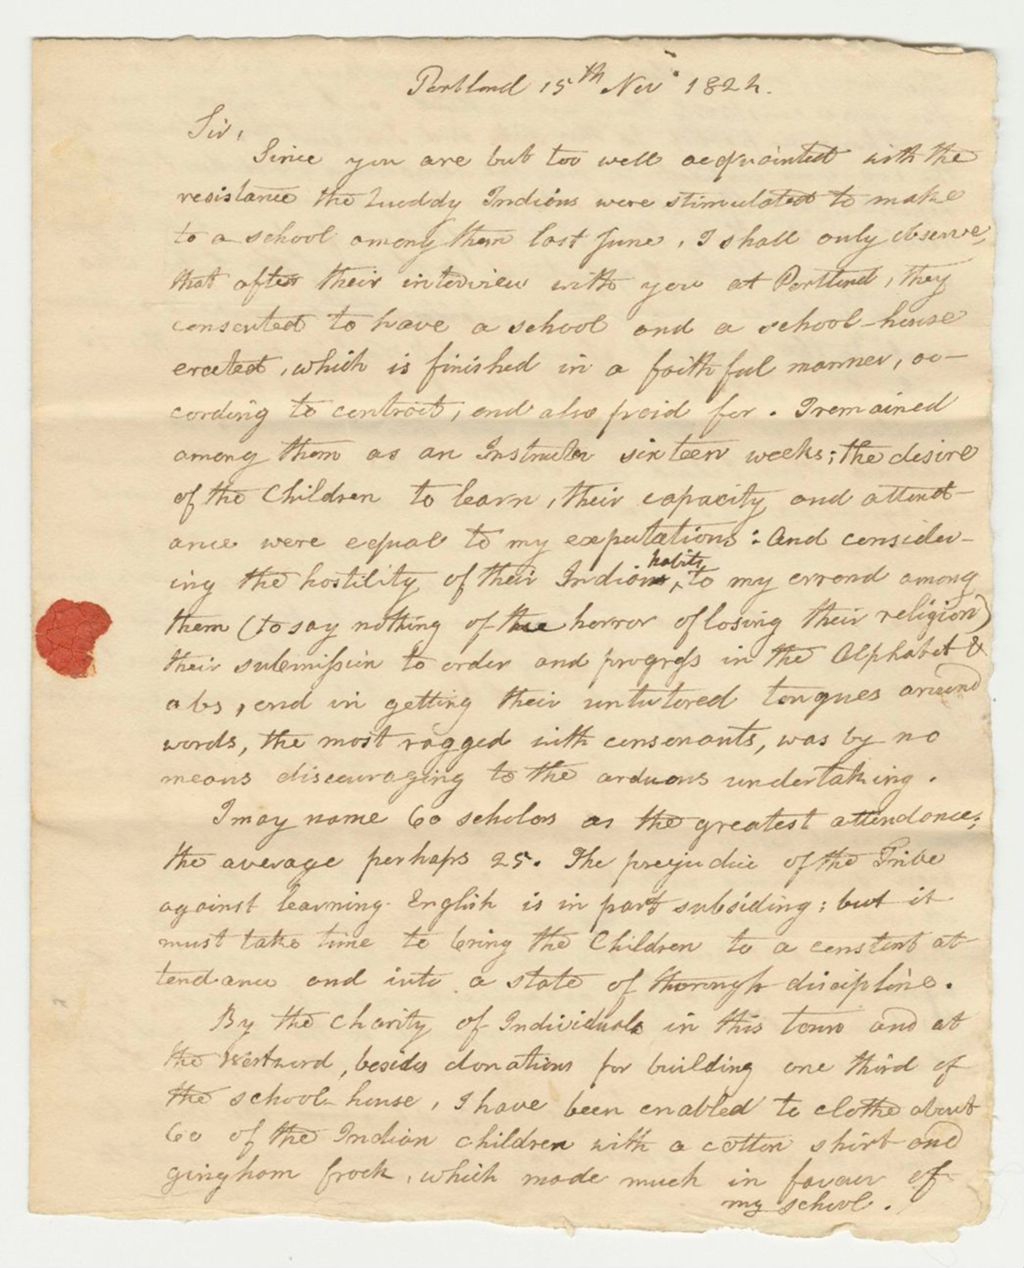 Portland 15th Nov 1824.
Sir,
Since you are but too well acquainted with the
resistance the Quoddy Indians were stimulated to make
to a school among them last June, I shall only observe,
that after their interview with you at Portland, they
consented to have a school and a school-house
erected, which is finished in a faithful manner, ac-
cording to contract, and also paid for. I remained
among them as an Instructor sixteen weeks; the desire
of the Children to learn, their capacity and attend-
ance were equal to my expectations: And consider-
ing the hostility of their Indian habits, to my errand among
them (to say nothing of the horror of losing their religion)
their submission to order and progress in the Alphabet &
abs, and in getting their untutored tongues around
words, the most ragged with consonants, was by no
means discouraging to the arduous undertaking.
I may name 60 scholars as the greatest attendance;
the average perhaps 25. The prejudice of the Tribe
against learning English is in part subsiding; but it
must take time to bring the Children to a constant at-
tendance and into a state of thorough discipline.
By the charity of Individuals in this town and at
the Westward, besides donations for building one third of
the school-house, I have been enabled to clothe about
60 of the Indian children with a cotton shirt and
gingham frock, which made much in favour of
my school.